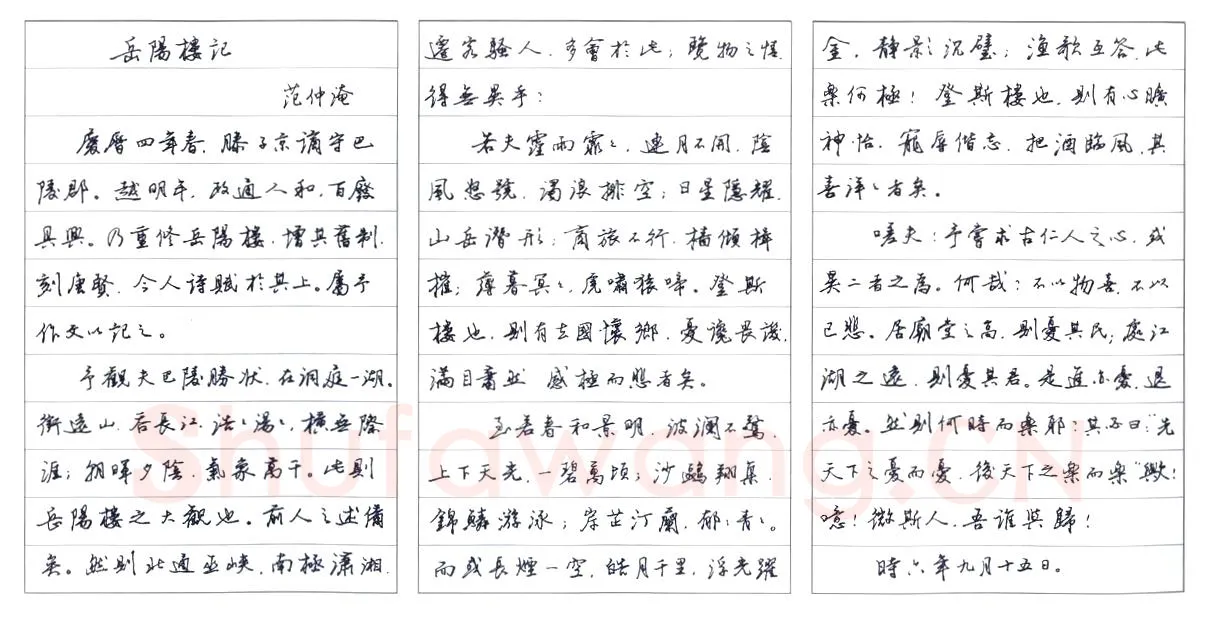 岳陽樓記
范仲淹
慶曆四年春，滕子京謫守巴
陵郡。越明年，政通人和，百廢
具興。乃重修岳陽樓，增其舊制，
刻唐賢、今人詩賦於其上。屬予
作文以記之。
予觀夫巴陵勝狀，在洞庭一湖。
銜遠山，吞長江，浩浩湯湯，橫無際
涯；朝暉夕陰，氣象萬千。此則
岳陽樓之大觀也。前人之述備
矣。然則北通巫峽，南極瀟湘，
遷客騷人，多會於此；覽物之情，
得無異乎：
若夫霪雨霏〻，連月不開，陰
風怒號，濁浪排空；日星隱耀，
山岳潛形；商旅不行，檣傾楫
摧；薄暮冥〻，虎嘯猿啼。登斯
樓也，則有去國懷鄉，憂讒畏譏，
滿目蕭然，感極而悲者矣。
至若春和景明，波瀾不驚，
上下天光，一碧萬頃；沙鷗翔集，
錦鱗游泳；岸芷汀蘭，郁〻青〻。
而或長煙一空，皓月千里，浮光躍
金，靜影沉璧；漁歌互答，此
樂何極！登斯樓也，則有心曠
神怡，寵辱偕忘，把酒臨風，其
喜洋〻者矣。
嗟夫！予嘗求古仁人之心，或
異二者之為。何哉？不以物喜，不以
己悲。居廟堂之高，則憂其民；處江
湖之遠，則憂其君。是進亦憂，退
亦憂。然則何時而樂耶？其必曰“先
天下之憂而憂，後天下之樂而樂”歟！
噫！微斯人，吾誰與歸！
時六年九月十五日。
Shufawang.CN